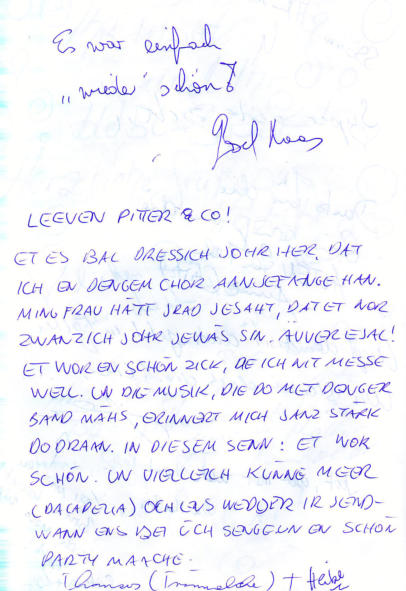 Es war einfach
„wieder" schön!
LEEVEN PITTER & CO!
ET ES BAL DRESSICH JOHR HER, DAT
ICH EN DENGEM CHOR AANJEFANGE HAN.
MING FRAU HÄTT JRAD JESAHT, DAT ET NOR
ZWANZICH JOHR JEWÄS SIN. ÄVVER EJAL!
ET WOR EN SCHÖN ZICK, DE ICH NIT MESSE
WELL. UN DIE MUSIK, DIE DO MET DENGER
BAND MÄHS, ERINNERT MICH JANZ STARK
DODRAAN. IN DIESEM SENN: ET WOR
SCHÖN. UN VIELLEICH KÜNNE MEER
(DACAPELLA) OCH ENS WEDDER IRJEND-
WANN ENS BEI ÜCH SENGE UN EN SCHÖN
PARTY MAACHE.
Thomas ( ) + Heike